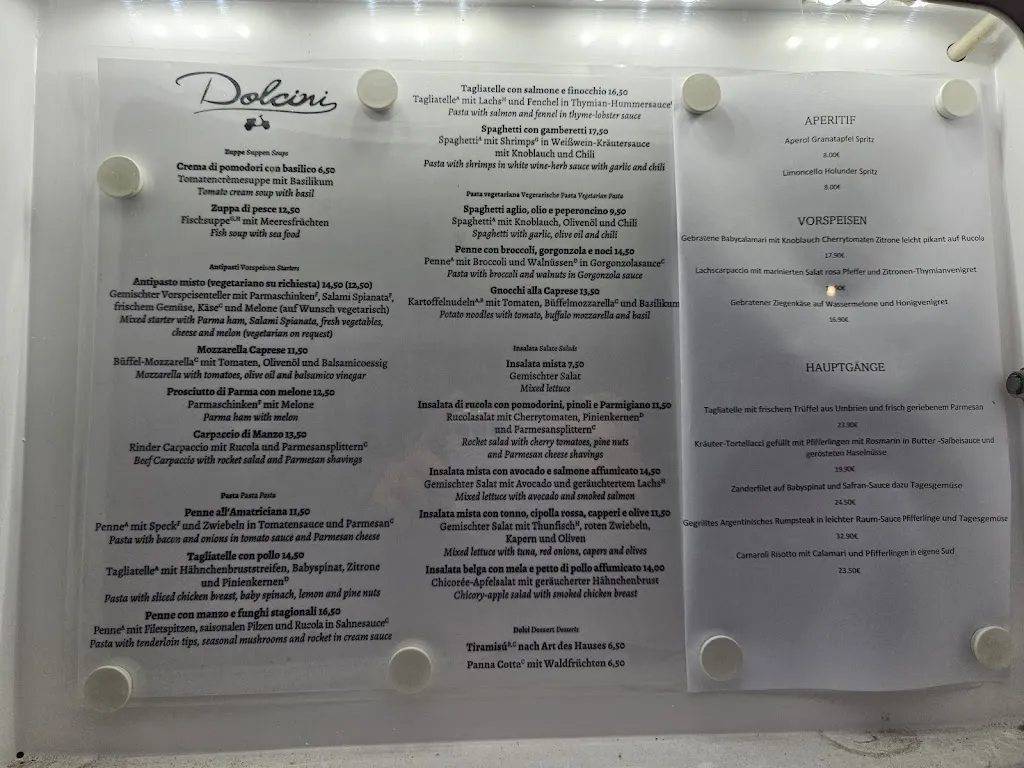 Dolcini
Zuppe Suppen Soups
Crema di pomodori con basilico 6,50
Tomatencrèmesuppe mit Basilikum
Tomato cream soup with basil
Zuppa di pesce 12,50
Fischsuppe mit Meeresfrüchten
Fish soup with sea food
Antipasti Vorspeisen Starters
Antipasto misto (vegetariano su richiesta) 14,50 (12,50)
Gemischter Vorspeisenteller mit Parmaschinkenᶠ, Salami Spianataᶠ,
frischem Gemüse, Käseᴳ und Melone (auf Wunsch vegetarisch)
Mixed starter with Parma ham, Salami Spianata, fresh vegetables,
cheese and melon (vegetarian on request)
Mozzarella Caprese 11,50
Büffel-Mozzarellaᴳ mit Tomaten, Olivenöl und Balsamicoessig
Mozzarella with tomatoes, olive oil and balsamico vinegar
Prosciutto di Parma con melone 12,50
Parmaschinkenᶠ mit Melone
Parma ham with melon
Carpaccio di Manzo 13,50
Rinder Carpaccio mit Rucola und Parmesansplitternᴳ
Beef Carpaccio with rocket salad and Parmesan shavings
Pasta Pasta Pasta
Penne all'Amatriciana 11,50
Penneᴬ mit Speckᶠ und Zwiebeln in Tomatensauce und Parmesanᴳ
Pasta with bacon and onions in tomato sauce and Parmesan cheese
Tagliatelle con pollo 14,50
Tagliatelleᴬ mit Hähnchenbruststreifen, Babyspinat, Zitrone
und Pinienkernenᴰ
Pasta with sliced chicken breast, baby spinach, lemon and pine nuts
Penne con manzo e funghi stagionali 16,50
Penneᴬ mit Filetspitzen, saisonalen Pilzen und Rucola in Sahnesauceᴳ
Pasta with tenderloin tips, seasonal mushrooms and rocket in cream sauce
Tagliatelle con salmone e finocchio 16,50
Tagliatelleᴬ mit Lachsᴴ und Fenchel in Thymian-Hummersauce
Pasta with salmon and fennel in thyme-lobster sauce
Spaghetti con gamberetti 17,50
Spaghettiᴬ mit Shrimps in Weißwein-Kräutersauce
mit Knoblauch und Chili
Pasta with shrimps in white wine-herb sauce with garlic and chili
Pasta vegetariana Vegetarische Pasta Vegetarian Pasta
Spaghetti aglio, olio e peperoncino 9,50
Spaghettiᴬ mit Knoblauch, Olivenöl und Chili
Spaghetti with garlic, olive oil and chili
Penne con broccoli, gorgonzola e noci 14,50
Penneᴬ mit Broccoli und Walnüssenᴰ in Gorgonzolasauceᴳ
Pasta with broccoli and walnuts in Gorgonzola sauce
Gnocchi alla Caprese 13,50
Kartoffelnudelnᴬ,ᴮ mit Tomaten, Büffelmozzarellaᴳ und Basilikum
Potato noodles with tomato, buffalo mozzarella and basil
Insalata Salate Salads
Insalata mista 7,50
Gemischter Salat
Mixed lettuce
Insalata di rucola con pomodorini, pinoli e Parmigiano 11,50
Rucolasalat mit Cherrytomaten, Pinienkernenᴰ
und Parmesansplitternᴳ
Rocket salad with cherry tomatoes, pine nuts
and Parmesan cheese shavings
Insalata mista con avocado e salmone affumicato 14,50
Gemischter Salat mit Avocado und geräuchertem Lachsᴴ
Mixed lettuce with avocado and smoked salmon
Insalata mista con tonno, cipolla rossa, capperi e olive 11,50
Gemischter Salat mit Thunfischᴴ, roten Zwiebeln,
Kapern und Oliven
Mixed lettuce with tuna, red onions, capers and olives
Insalata belga con mela e petto di pollo affumicato 14,00
Chicorée-Apfelsalat mit geräucherter Hähnchenbrust
Chicory-apple salad with smoked chicken breast
Dolci Dessert Desserts
Tiramisúᴮ,ᴳ nach Art des Hauses 6,50
Panna Cottaᴳ mit Waldfrüchten 6,50
APERITIF
Aperol Granatapfel Spritz
8.00€
Limoncello Holunder Spritz
8.00€
VORSPEISEN
Gebratene Babycalamari mit Knoblauch Cherrytomaten Zitrone leicht pikant auf Rucola
17.90€
Lachscarpaccio mit marinierten Salat rosa Pfeffer und Zitronen-Thymianvenigret
Gebratener Ziegenkäse auf Wassermelone und Honigvenigret
16.90€
HAUPTGÄNGE
Tagliatelle mit frischem Trüffel aus Umbrien und frisch geriebenem Parmesan
23.90€
Kräuter-Tortellacci gefüllt mit Pfifferlingen mit Rosmarin in Butter -Salbeisauce und
gerösteten Haselnüsse
19.90€
Zanderfilet auf Babyspinat und Safran-Sauce dazu Tagesgemüse
24.50€
Gegrilltes Argentinisches Rumpsteak in leichter Raum-Sauce Pfifferlinge und Tagesgemüse
32.90€
Carnaroli Risotto mit Calamari und Pfifferlingen in eigene Sud
23.50€